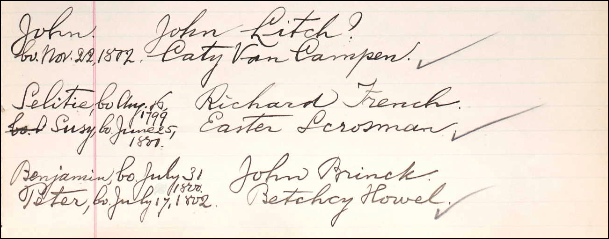 John. John Litch?
bo. Nov. 22, 1802. Caty Van Campen.
Selitie, bo Aug. 16, 1799 Richard French.
bo. Susy, bo June 25, 1801. Easter Scrosman
Benjamin, bo. July 31 1800. John Brinck.
Peter, bo. July 17, 1802. Betchcy Howel.